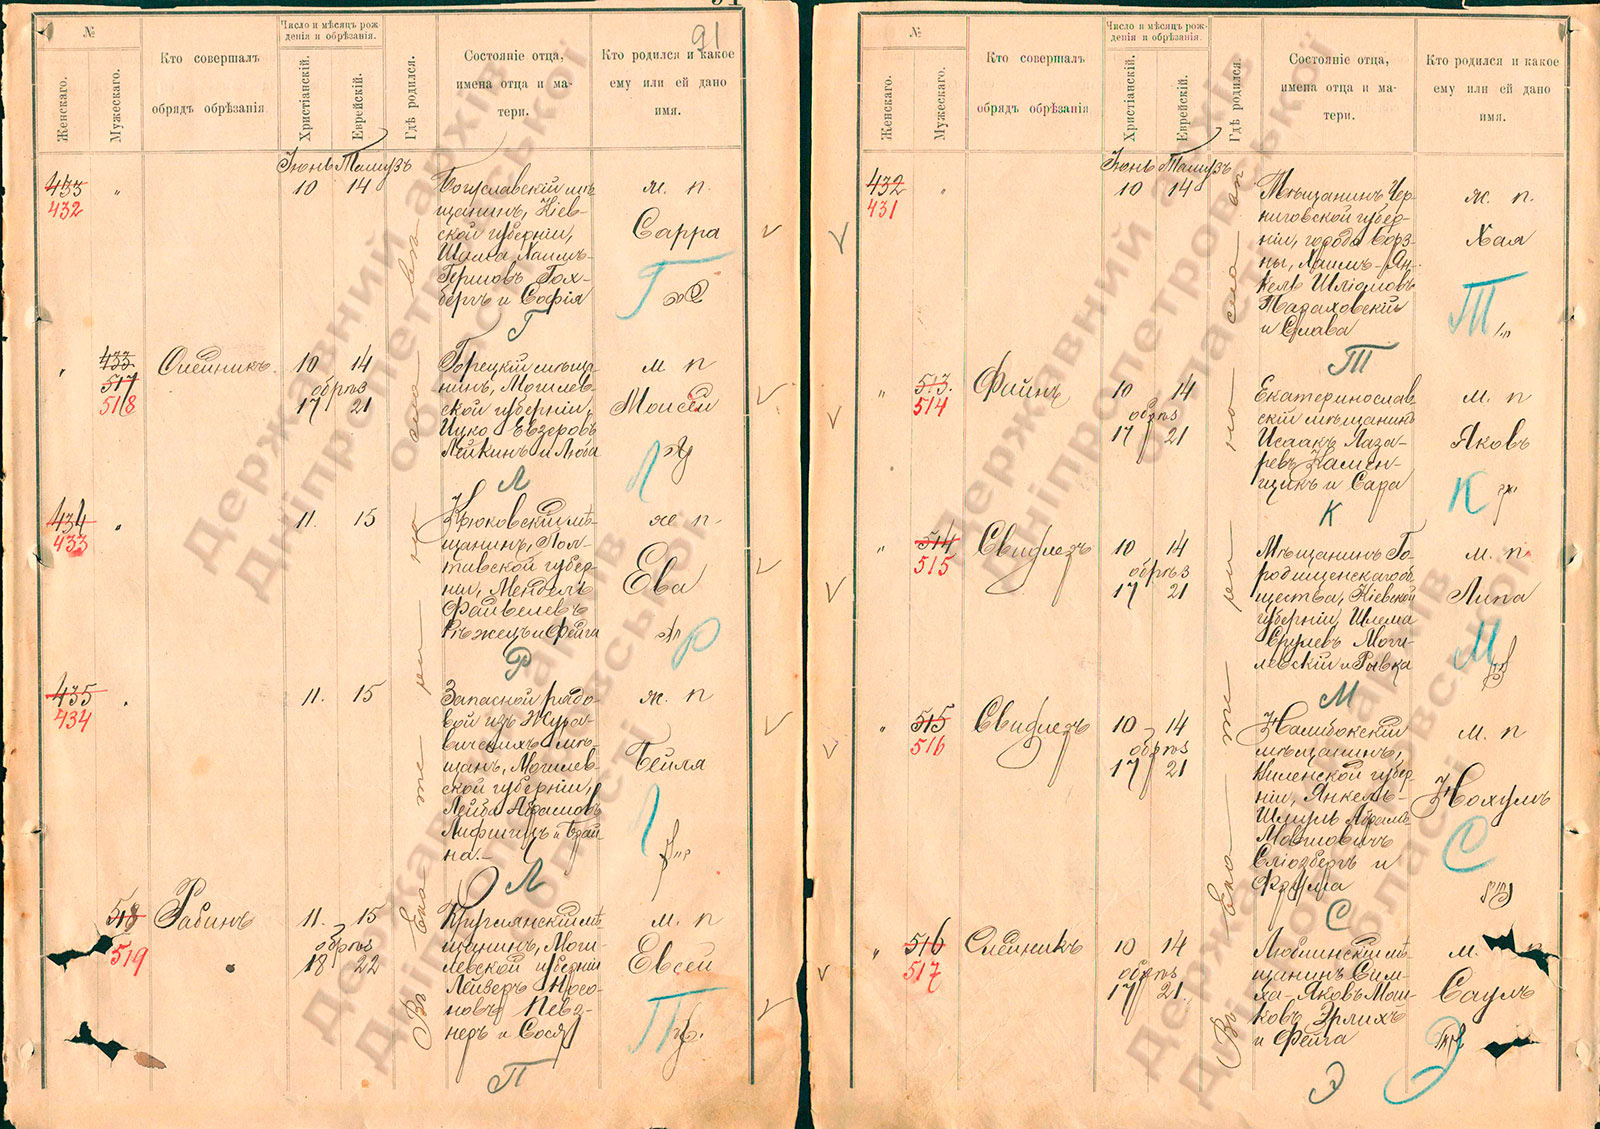 91
№
Женскаго.
Мужескаго.
Кто совершалъ
обрядъ обрѣзанія
Число и мѣсяцъ рож-
денія и обрѣзанія.
Христіанскій.
Еврейскій.
Гдѣ родился.
Состояніе отца,
имена отца и ма-
тери.
Кто родился и какое
ему или ей дано
имя.
Іюнь Тамузъ
433
432
"
10 14
Богуславскій мѣ-
щанинъ, Кіев-
ской губерніи,
Шайка Хаимъ-
Гершовъ Гох-
бергъ и Софія
Г
ж. п.
Сарра
Г
"
433
517
518
Олейникъ
10 14
обрѣз
17 21
Горецкій мѣща-
нинъ, Могилев-
ской губерніи,
Ицко Евзеровъ
Лейкинъ и Люба
Л
м п
Моисей
Л
434
433
"
11. 15
Крюковскій мѣ-
щанинъ, Пол-
тавской губер-
ніи, Мендель
Файвелевъ
Рѣжецъ и Фейга
Р
ж п.
Ева
Р
435
434
11. 15
Запасной рядо-
вой изъ Жура-
вичскихъ мѣ-
щанъ, Могилев-
ской губерніи,
Лейба Абрамовъ
Лифшицъ и Брай-
на.-
Л
ж. п
Бейля
Л
518
519
Рабинъ
11. 15
обрѣз
18 22
Круглянскій мѣ-
щанинъ, Моги-
левской губерніи
Лейзеръ Носо-
новъ Певз-
неръ и Сося
П
м. п
Евсей
П
Въ Ека-те-ри-но-сла-вѣ
№
Женскаго.
Мужескаго.
Кто совершалъ
обрядъ обрѣзанія
Число и мѣсяцъ рож-
денія и обрѣзанія.
Христіанскій.
Еврейскій.
Гдѣ родился.
Состояніе отца,
имена отца и ма-
тери.
Кто родился и какое
ему или ей дано
имя.
Іюнь Тамузъ
432
431
"
10 14
Мѣщанинъ Чер-
ниговской губер-
ніи, города Борз-
ны, Хаимъ-Ян-
кель Шліомовъ
Тараховскій
и Слава
Т
ж. п.
Хая
Т
"
513.
514
Файнъ
10 14
обрѣз
17 21
Екатеринослав-
скій мѣщанинъ
Исаакъ Лаза-
ревъ Камен-
щикъ и Сара
К
м. п
Яковъ
К
"
514
515
Свирлезъ
10 14
обрѣз
17 21
Мѣщанинъ Го-
родищенскаго об-
щества, Кіевской
губерніи, Шлема
Срулевъ Моги-
левскій и Ривка
М
м. п
Липа
М
"
515
516
Свирлезъ
10 14
обрѣз
17 21
Налибокскій
мѣщанинъ,
Виленской губер-
ніи, Янкель-
Шмуль Абрамъ-
Мовшовичъ
Сліозбергъ и
Фрума
С
м. п
Нохумъ
С
"
516
517
Олейникъ
10 14
обрѣз
17 21.
Люблинскій мѣ-
щанинъ Сим-
ха-Яковъ Мош-
ковъ Эрлихъ
и Фейга
Э
м. п
Саулъ
Э
Въ Ека-те-ри-но-сла-вѣ
Державний архів
Дніпропетровської
області